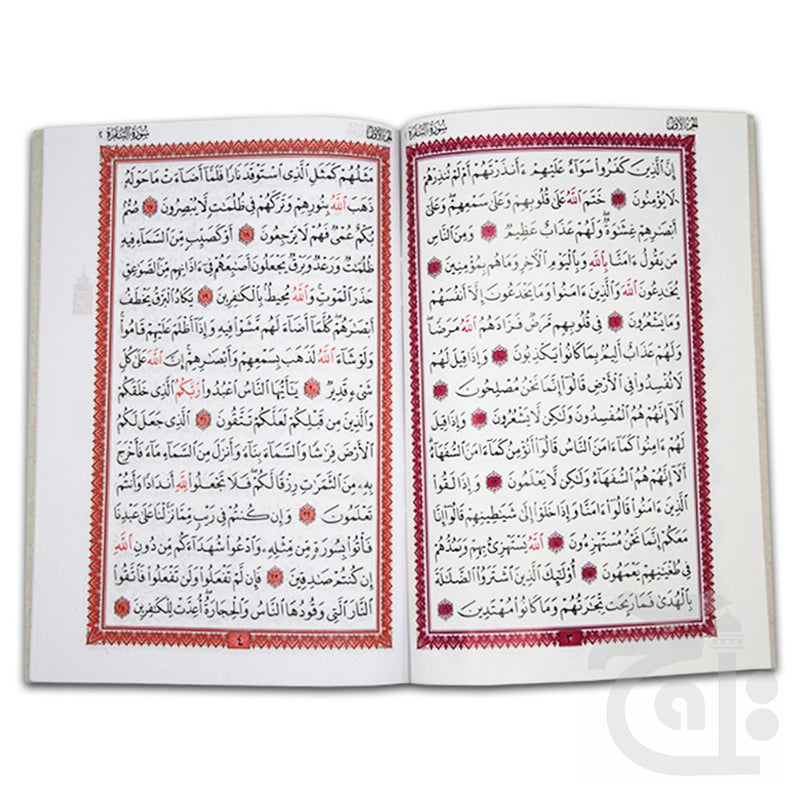 سُورَةُ البَقَرَةِ
الجزء الأول
إِنَّ ٱلَّذِينَ كَفَرُوا۟ سَوَآءٌ عَلَيْهِمْ ءَأَنذَرْتَهُمْ أَمْ لَمْ تُنذِرْهُمْ
لَا يُؤْمِنُونَ ٦ خَتَمَ ٱللَّهُ عَلَىٰ قُلُوبِهِمْ وَعَلَىٰ سَمْعِهِمْ ۖ وَعَلَىٰٓ
أَبْصَٰرِهِمْ غِشَٰوَةٌ ۖ وَلَهُمْ عَذَابٌ عَظِيمٌ ٧ وَمِنَ ٱلنَّاسِ
مَن يَقُولُ ءَامَنَّا بِٱللَّهِ وَبِٱلْيَوْمِ ٱلْءَاخِرِ وَمَا هُم بِمُؤْمِنِينَ ٨
يُخَٰدِعُونَ ٱللَّهَ وَٱلَّذِينَ ءَامَنُوا۟ وَمَا يَخْدَعُونَ إِلَّآ أَنفُسَهُمْ
وَمَا يَشْعُرُونَ ٩ فِى قُلُوبِهِم مَّرَضٌ فَزَادَهُمُ ٱللَّهُ مَرَضًا ۖ
وَلَهُمْ عَذَابٌ أَلِيمٌۢ بِمَا كَانُوا۟ يَكْذِبُونَ ١٠ وَإِذَا قِيلَ لَهُمْ
لَا تُفْسِدُوا۟ فِى ٱلْأَرْضِ قَالُوٓا۟ إِنَّمَا نَحْنُ مُصْلِحُونَ ١١
أَلَآ إِنَّهُمْ هُمُ ٱلْمُفْسِدُونَ وَلَٰكِن لَّا يَشْعُرُونَ ١٢ وَإِذَا قِيلَ
لَهُمْ ءَامِنُوا۟ كَمَآ ءَامَنَ ٱلنَّاسُ قَالُوٓا۟ أَنُؤْمِنُ كَمَآ ءَامَنَ ٱلسُّفَهَآءُ ۗ
أَلَآ إِنَّهُمْ هُمُ ٱلسُّفَهَآءُ وَلَٰكِن لَّا يَعْلَمُونَ ١٣ وَإِذَا لَقُوا۟
ٱلَّذِينَ ءَامَنُوا۟ قَالُوٓا۟ ءَامَنَّا وَإِذَا خَلَوْا۟ إِلَىٰ شَيَٰطِينِهِمْ قَالُوٓا۟ إِنَّا
مَعَكُمْ إِنَّمَا نَحْنُ مُسْتَهْزِءُونَ ١٤ ٱللَّهُ يَسْتَهْزِئُ بِهِمْ وَيَمُدُّهُمْ
فِى طُغْيَٰنِهِمْ يَعْمَهُونَ ١٥ أُو۟لَٰٓئِكَ ٱلَّذِينَ ٱشْتَرَوُا۟ ٱلضَّلَٰلَةَ
بِٱلْهُدَىٰ فَمَا رَبِحَت تِّجَٰرَتُهُمْ وَمَا كَانُوا۟ مُهْتَدِينَ ١٦
٣
الجزء الأول
سُورَةُ البَقَرَةِ ٢
مَثَلُهُمْ كَمَثَلِ ٱلَّذِى ٱسْتَوْقَدَ نَارًا فَلَمَّآ أَضَآءَتْ مَا حَوْلَهُۥ
ذَهَبَ ٱللَّهُ بِنُورِهِمْ وَتَرَكَهُمْ فِى ظُلُمَٰتٍ لَّا يُبْصِرُونَ ١٧ صُمٌّۢ
بُكْمٌ عُمْىٌ فَهُمْ لَا يَرْجِعُونَ ١٨ أَوْ كَصَيِّبٍ مِّنَ ٱلسَّمَآءِ فِيهِ
ظُلُمَٰتٌ وَرَعْدٌ وَبَرْقٌ يَجْعَلُونَ أَصَٰبِعَهُمْ فِىٓ ءَاذَانِهِم مِّنَ ٱلصَّوَٰعِقِ
حَذَرَ ٱلْمَوْتِ ۚ وَٱللَّهُ مُحِيطٌۢ بِٱلْكَٰفِرِينَ ١٩ يَكَادُ ٱلْبَرْقُ يَخْطَفُ
أَبْصَٰرَهُمْ ۖ كُلَّمَآ أَضَآءَ لَهُم مَّشَوْا۟ فِيهِ وَإِذَآ أَظْلَمَ عَلَيْهِمْ قَامُوا۟ ۚ
وَلَوْ شَآءَ ٱللَّهُ لَذَهَبَ بِسَمْعِهِمْ وَأَبْصَٰرِهِمْ ۚ إِنَّ ٱللَّهَ عَلَىٰ كُلِّ
شَىْءٍ قَدِيرٌ ٢٠ يَٰٓأَيُّهَا ٱلنَّاسُ ٱعْبُدُوا۟ رَبَّكُمُ ٱلَّذِى خَلَقَكُمْ
وَٱلَّذِينَ مِن قَبْلِكُمْ لَعَلَّكُمْ تَتَّقُونَ ٢١ ٱلَّذِى جَعَلَ لَكُمُ
ٱلْأَرْضَ فِرَٰشًا وَٱلسَّمَآءَ بِنَآءً وَأَنزَلَ مِنَ ٱلسَّمَآءِ مَآءً فَأَخْرَجَ
بِهِۦ مِنَ ٱلثَّمَرَٰتِ رِزْقًا لَّكُمْ ۖ فَلَا تَجْعَلُوا۟ لِلَّهِ أَندَادًا وَأَنتُمْ
تَعْلَمُونَ ٢٢ وَإِن كُنتُمْ فِى رَيْبٍ مِّمَّا نَزَّلْنَا عَلَىٰ عَبْدِنَا
فَأْتُوا۟ بِسُورَةٍ مِّن مِّثْلِهِۦ وَٱدْعُوا۟ شُهَدَآءَكُم مِّن دُونِ ٱللَّهِ
إِن كُنتُمْ صَٰدِقِينَ ٢٣ فَإِن لَّمْ تَفْعَلُوا۟ وَلَن تَفْعَلُوا۟ فَٱتَّقُوا۟
ٱلنَّارَ ٱلَّتِى وَقُودُهَا ٱلنَّاسُ وَٱلْحِجَارَةُ ۖ أُعِدَّتْ لِلْكَٰفِرِينَ ٢٤
٤